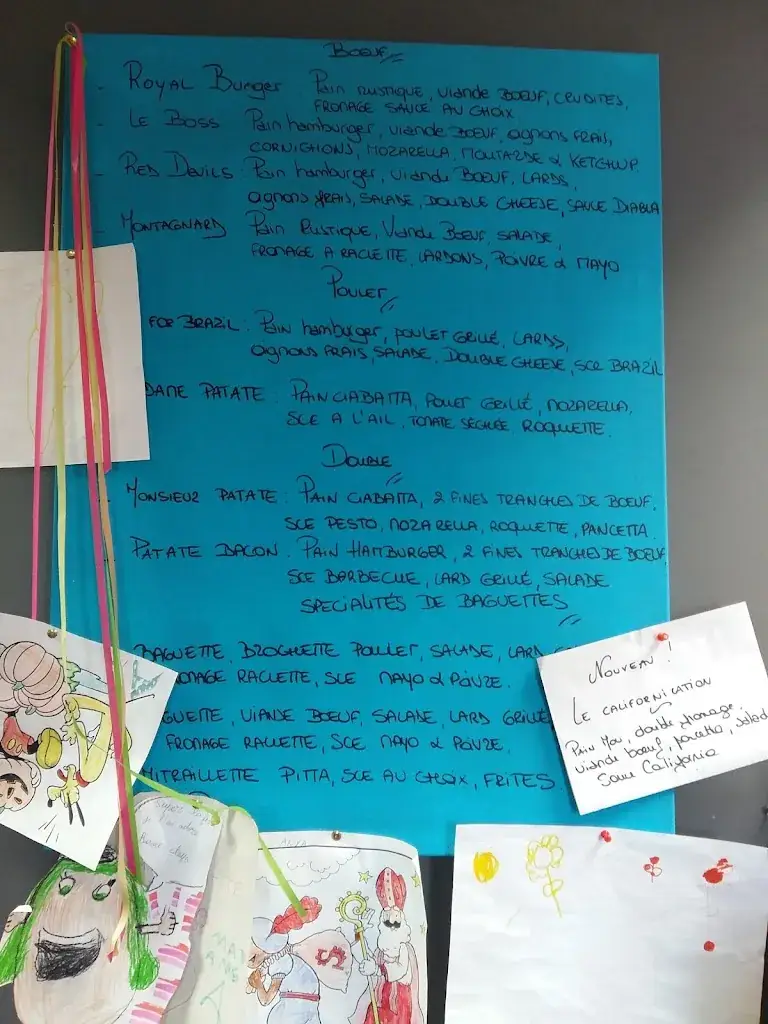 BOEUF
- ROYAL BURGER Pain RUSTIQUE, viande BOEUF, CRUDITES,
FROMAGE SAUCE AU CHOIX
- LE BOSS Pain hamburger, viande BOEUF, oignons FRAIS,
CORNICHONS, MOZARELLA, MOUTARDE & KETCHUP
- RED DEVILS : Pain hamburger, viande BOEUF, LARDS,
oignons frais, SALADE, DOUBLE CHEESE, SAUCE DIABLA
- MONTAGNARD Pain RUSTIQUE, Viande BOEUF, SALADE,
FROMAGE A RACLETTE, LARDONS, POIVRE & MAYO
POULET
FOR BRAZIL : Pain hamburger, POULET GRILLÉ, LARDS,
oignons FRAIS, SALADE, DOUBLE CHEESE, SCE BRAZIL
DAME PATATE : PAIN CIABATTA, POULET GRILLÉ, MOZARELLA,
SCE A L'AIL, TOMATE SÉCHÉE, ROQUETTE.
DOUBLE
- MONSIEUR PATATE : PAIN CIABATTA, 2 FINES TRANCHES DE BOEUF,
SCE PESTO, MOZARELLA, ROQUETTE, PANCETTA.
PATATE BACON : PAIN HAMBURGER, 2 FINES TRANCHES DE BOEUF,
SCE BARBECUE, LARD GRILLÉ, SALADE
SPECIALITÉS DE BAGUETTES
BAGUETTE, BROCHETTE POULET, SALADE, LARD
FROMAGE RACLETTE, SCE MAYO & POIVRE.
VIANDE BOEUF, SALADE, LARD GRILLÉ
FROMAGE RACLETTE, SCE MAYO & POIVRE.
MITRAILLETTE PITTA, SCE AU CHOIX, FRITES.
NOUVEAU !
LE CALIFORNICATION
Pain Mou, double fromage,
viande boeuf, pancetta, salade
Sauce California